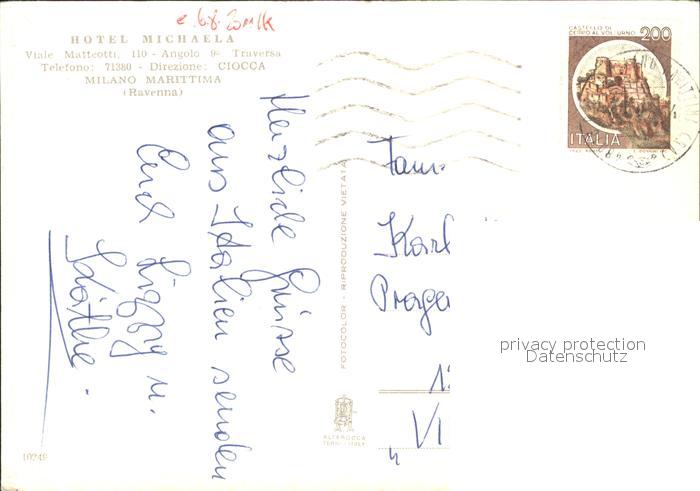 HOTEL MICHAELA
Viale Matteotti, 110 - Angolo 9ª Traversa
Telefono: 71380 - Direzione: CIOCCA
MILANO MARITTIMA
(Ravenna)
CASTELLO DI
CERRO AL VOLTURNO
200
ITALIA
Herzliche Grüsse
aus Italien senden
Euch Lizzy u.
Käthe.
FOTOCOLOR - RIPRODUZIONE VIETATA
Fam
Karl
Prager
VI
privacy protection
Datenschutz
ALTEROCCA
TERNI - ITALY
10249